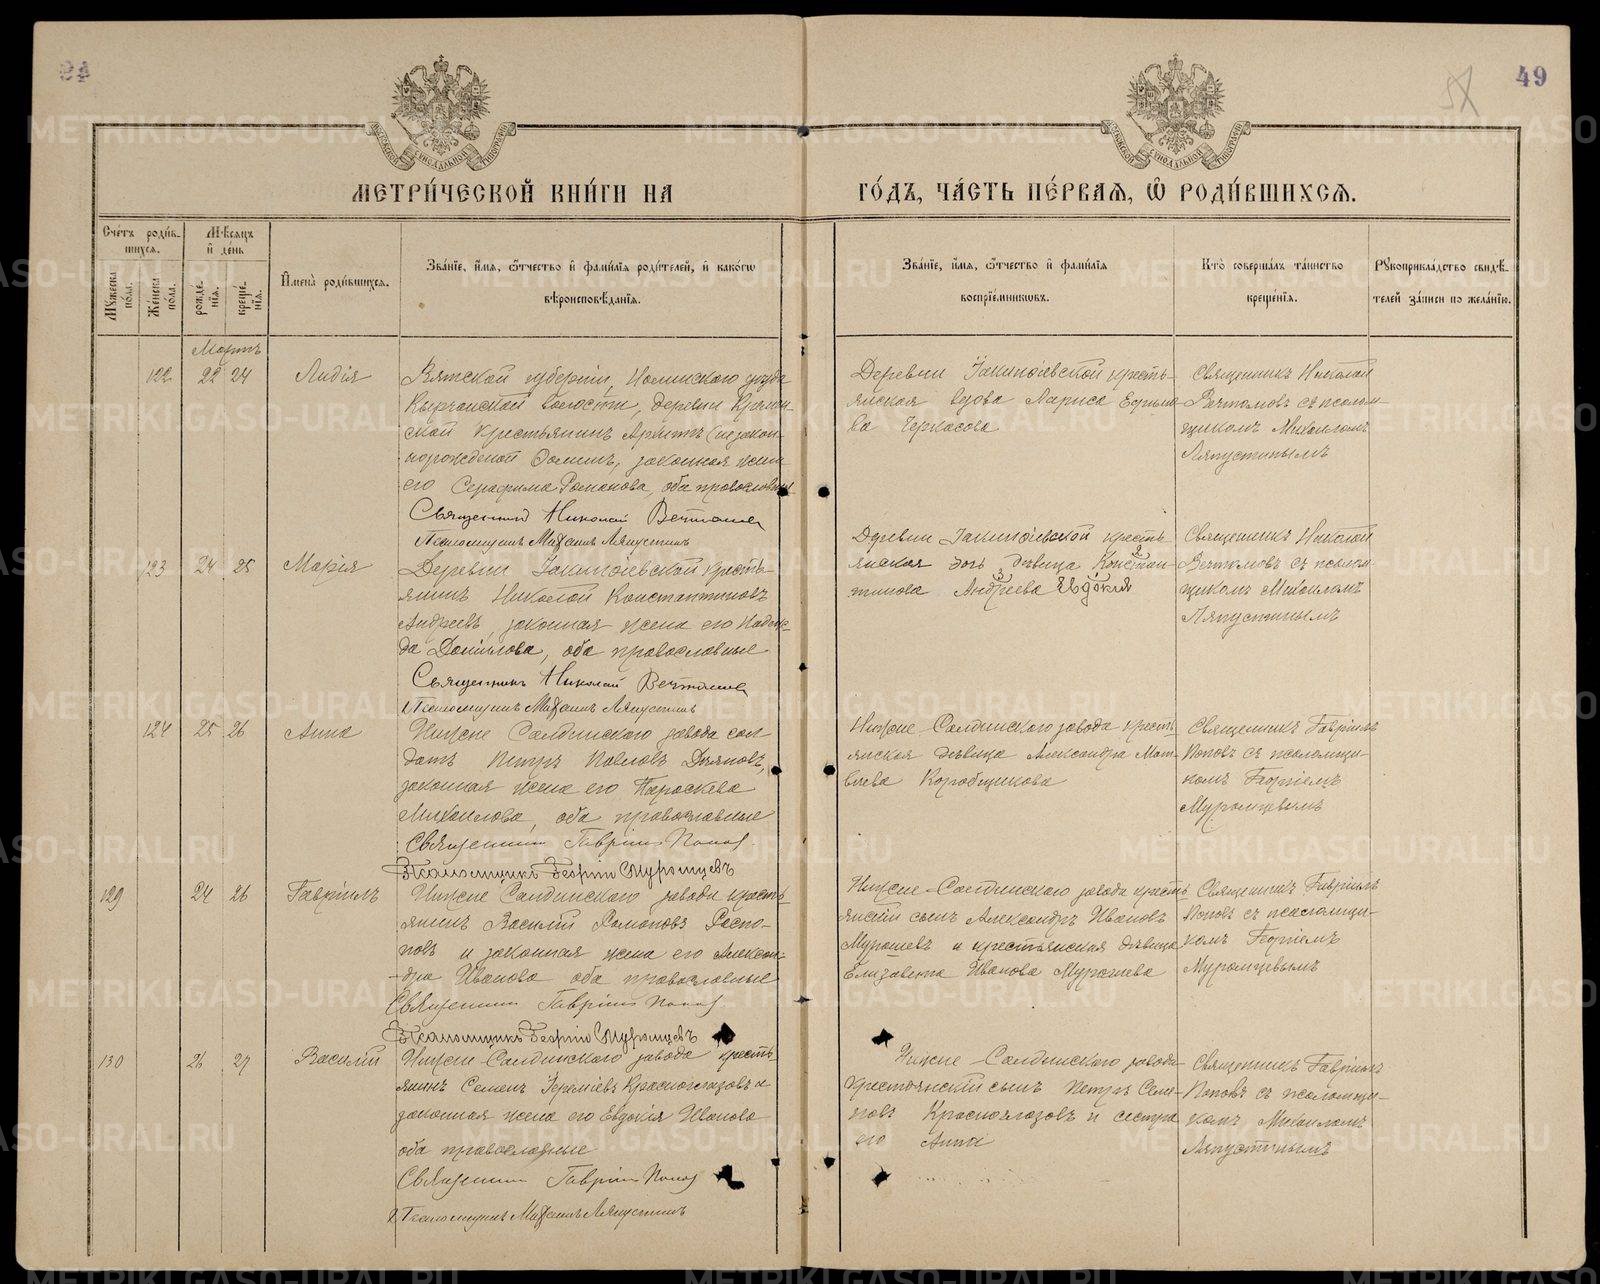 49
МЕТРИ́ЧЕСКОЙ КНИ́ГИ НА
ГО́ДЪ, ЧА́СТЬ ПЕ́РВАЯ, Ѡ҆ РОДИ́ВШИХСЯ.
Сче́тъ роди́в-
шихся.
Мꙋ́жеска пола.
Же́нска пола.
Мѣ́сяцъ
и҆ де́нь
рожде́-
нїя.
креще́-
нїя.
И҆мена̀ роди́вшихся.
Зва́нїе, и҆́мя, ѻ҆́тчество и҆ фами́лїя роди́телей, и҆ како́гѡ
вѣроисповѣ́данїя.
Зва́нїе, и҆́мя, ѻ҆́тчество и҆ фами́лїя
воспрїе́мниковъ.
Кто̀ соверша́лъ та́инство
креще́нїя.
Рꙋкоприкла́дство свидѣ́-
телей за́писи по жела́нїю.
Мартъ
122 22 24 Лидія
Вятской губерніи, Нолинскаго уѣзда
Кырчанской волости, деревни
ской крестьянинъ (незакон-
норожденой Ѳоминъ, законная жена
его Серафима Романова, оба православные
Священникъ Николай
Псаломщикъ Михаилъ Ляпустинъ
Деревни крестъ-
янская вдова Лариса Ефимо-
ва Черкасова
Священникъ Николай
съ псалом-
щикомъ Михаиломъ
Ляпустинымъ
123 24 25 Марія
Деревни крестъ-
янинъ Николай Константиновъ
Андреевъ, законная жена его Надеж-
да Данилова, оба православные
Священникъ Николай
Псаломщикъ Михаилъ Ляпустинъ
Деревни крестъ-
янская дочь дѣвица Констан-
тинова Андреева Евдокія
Священникъ Николай
съ псалом-
щикомъ Михаиломъ
Ляпустинымъ
124 25 26 Анна
Нижне-Салдинскаго завода сол-
датъ Петръ Павловъ
законная жена его Параскева
Михаилова, оба православные
Священникъ Гавріилъ Поповъ
Псаломщикъ Георгій Муромцевъ
Нижне-Салдинскаго завода крестъ-
янская дѣвица Александра Мат-
вѣева Коробщикова
Священникъ Гавріилъ
Поповъ съ псаломщи-
комъ Георгіемъ
Муромцевымъ
129 24 26 Гавріилъ
Нижне-Салдинскаго завода крестъ-
янинъ Василій Романовъ Распо-
повъ и законная жена его Алексан-
дра Иванова оба православные
Священникъ Гавріилъ Поповъ
Псаломщикъ Георгій Муромцевъ
Нижне-Салдинскаго завода крестъ-
янскій сынъ Александръ Ивановъ
и крестьянская дѣвица
Елизавета Иванова
Священникъ Гавріилъ
Поповъ съ псаломщи-
комъ Георгіемъ
Муромцевымъ
130 26 27 Василій
Нижне-Салдинскаго завода крестъ-
янинъ Семенъ Іереміевъ Красноглазовъ и
законная жена его Евдокія Иванова
оба православные
Священникъ Гавріилъ Поповъ
Псаломщикъ Михаилъ Ляпустинъ
Нижне-Салдинскаго завода
крестьянскій сынъ Петръ Семе-
новъ Красноглазовъ и сестра
его Анна
Священникъ Гавріилъ
Поповъ съ псаломщи-
комъ Михаиломъ
Ляпустинымъ
METRIKI.GASO-URAL.RU